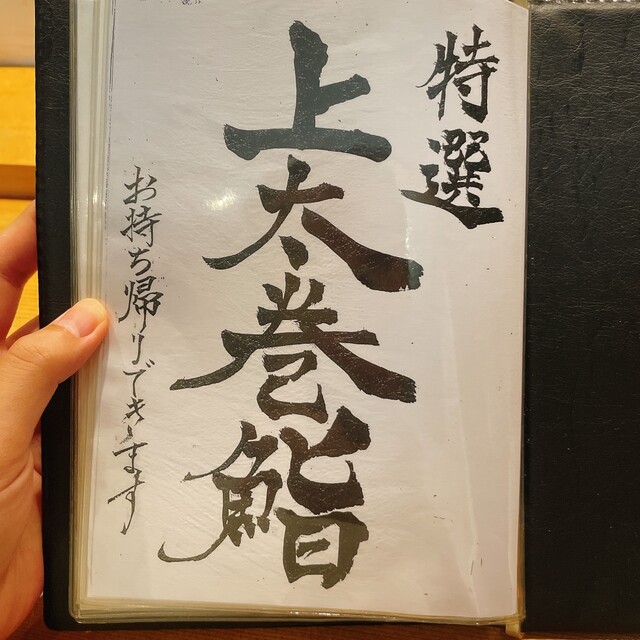 特選
上太巻鮨
お持ち帰りできます